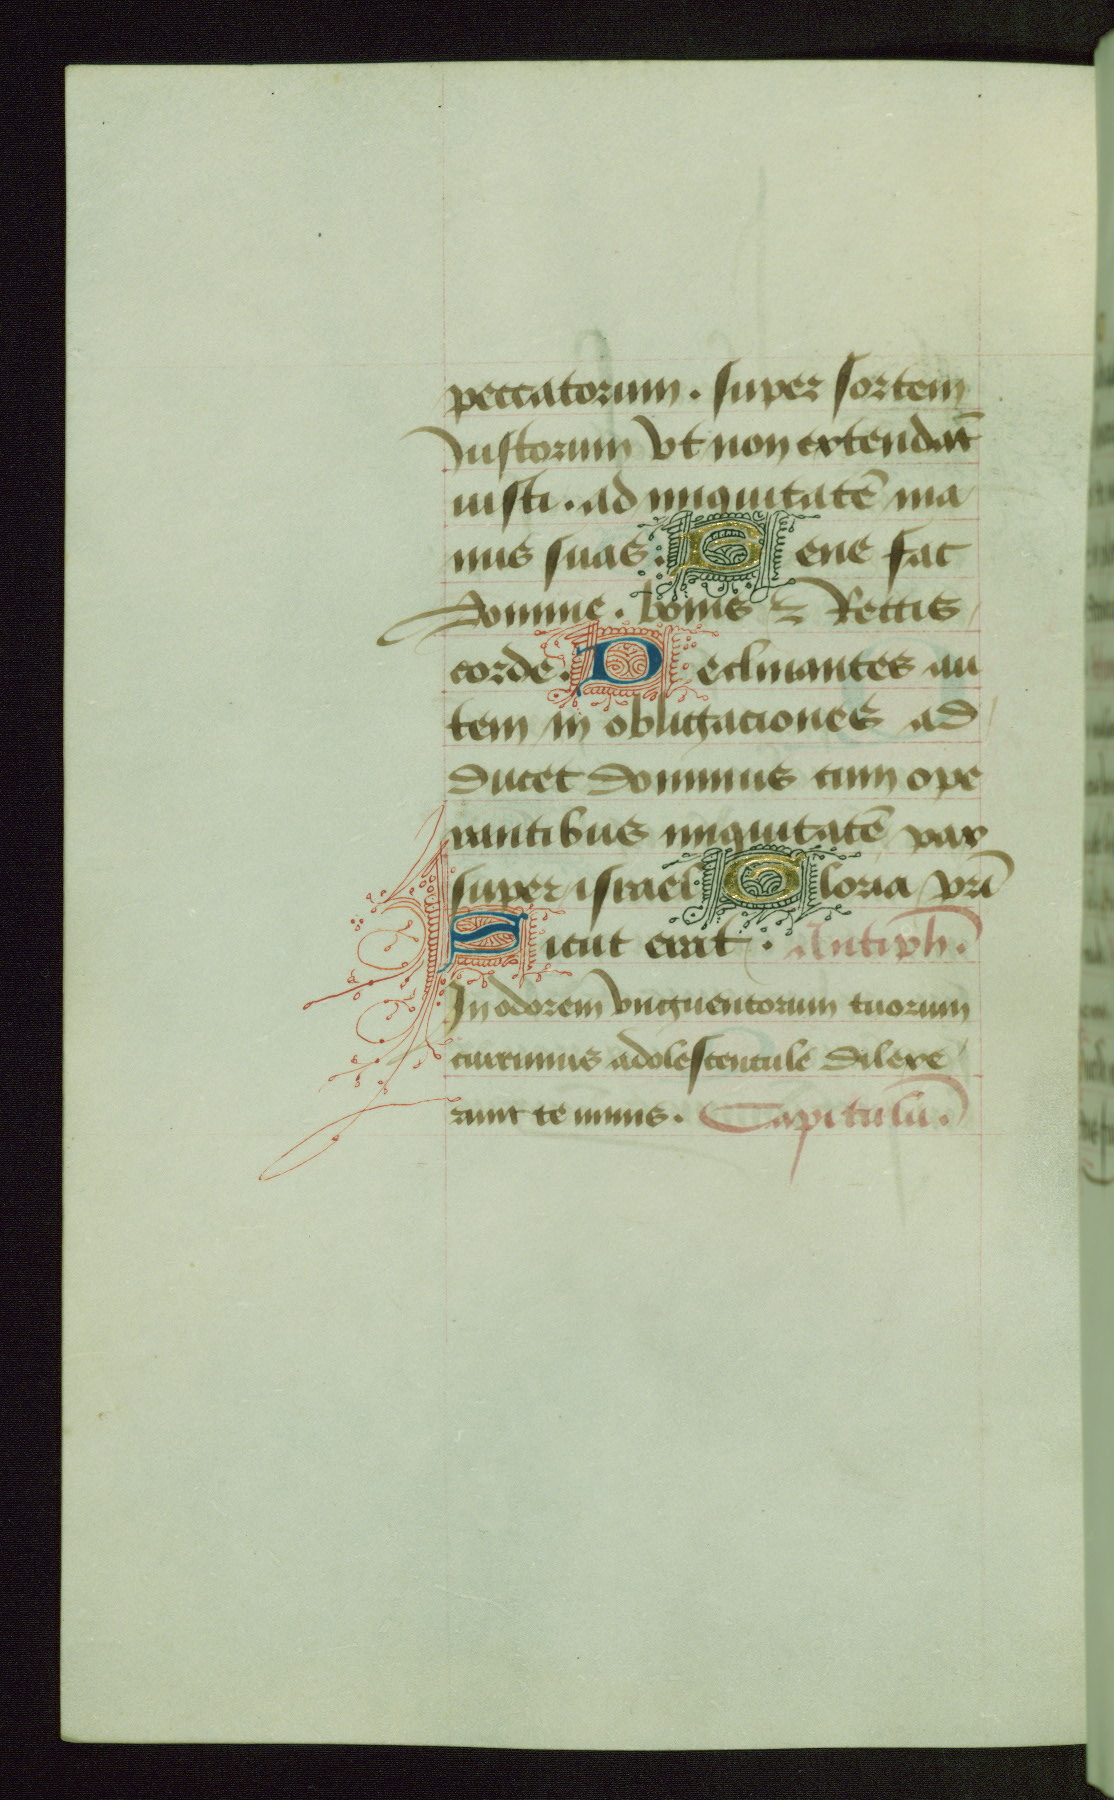 peccatorum. super sortem
Iustorum vt non extendāt
iusti. ad iniquitatē ma
nus suas. Bene fac
domine. bonis ⁊ Rectis
corde. Declinantes au
tem in obligaciones ad
ducet dominus cum ope
rantibus iniquitatē pax
super israel Gloria pr̄i
Sicut erat. Antiph.
In odorem vnguentorum tuorum
currimus adolescentule dilexe
runt te nimis. Capitulū.